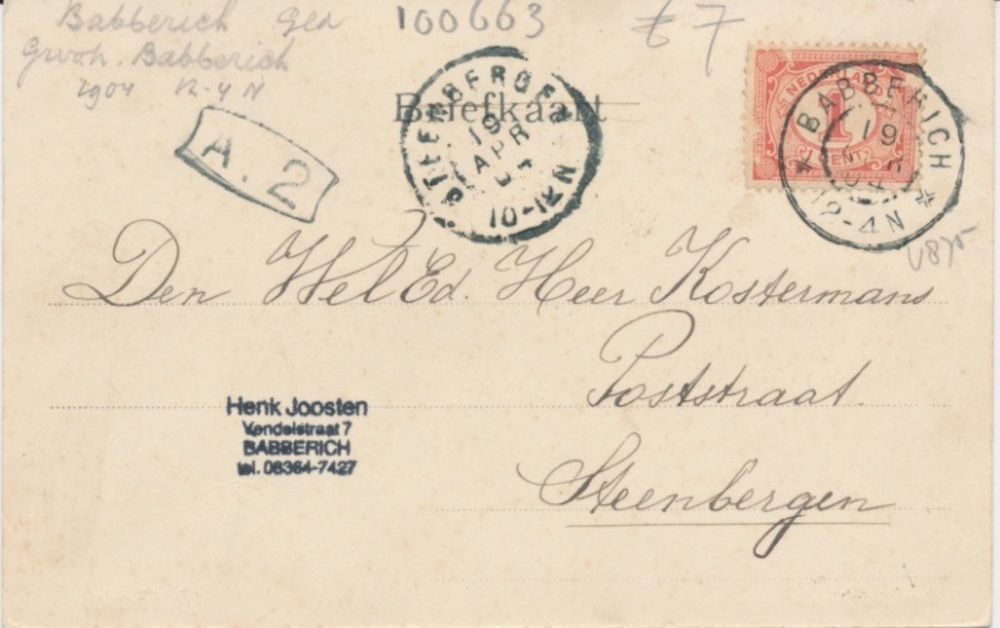 Babberich Gld
100663
£7
Grooh. Babberich
1904 12-4 N
A. 2
Briefkaart
STEENBERGEN
19
APR
10-12N
NEDERLAND
1
CENT
BABBERICH
19
04
12-4N
Den WelEd. Heer Kostermans
Poststraat.
Steenbergen
Henk Joosten
Vendelstraat 7
BABBERICH
tel. 08364-7427